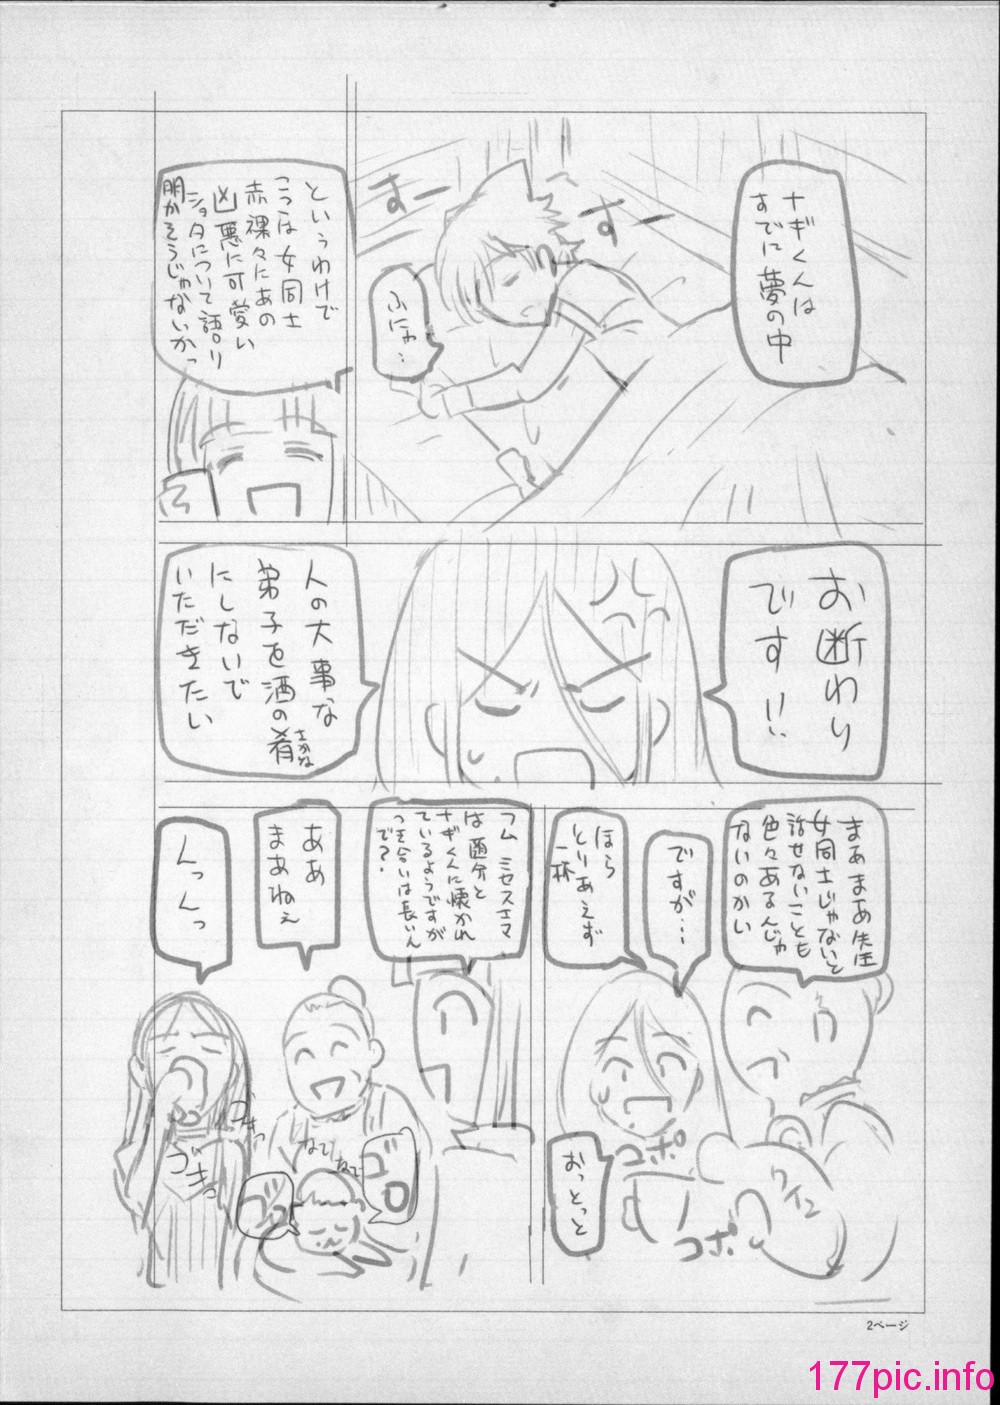 ナギくんは
すでに夢の中
すー
すー
ふにゃ…
というわけで
ここは女同士
赤裸々にあの
凶悪に可愛い
ショタについて語り
明かそうじゃないかっ
お断わり
です!!
人の大事な
弟子を酒の肴
さかな
にしないで
いただきたい
まあまあ先生
女同士じゃないと
話せないことも
色々あるんじゃ
ないのかい
ですが…
ほら
とりあえず
一杯
おっとっと
コポ
コポ
ワイン
フム ミセスエマ
は随分と
ナギくんに懐かれ
ているようですが
つき合いは長いん
で?
ああ
まあねぇ
んっんっ
なで
なで
ゴロ
2ページ
177pic.info